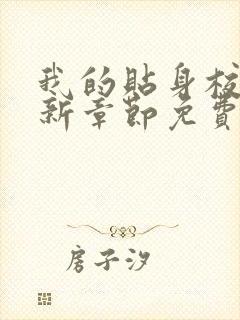 我的贴身校
新章節免費
房子汐